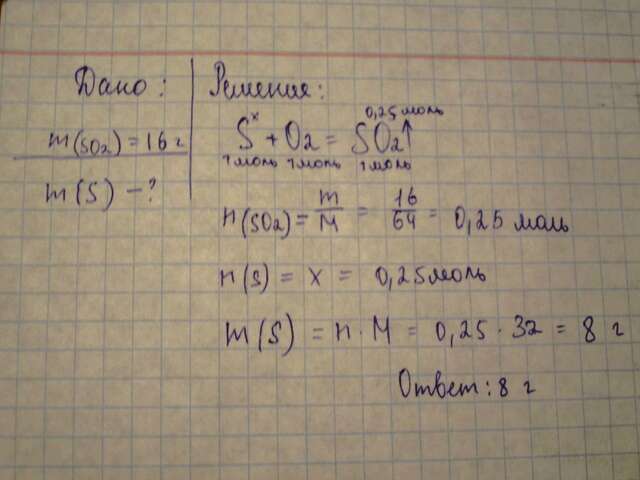 Дано:
m(SO2) = 16 г
m(S) - ?
Решение:
x 0,25 моль
S + O2 = SO2↑
1 моль 1 моль 1 моль
n(SO2) = m/M = 16/64 = 0,25 моль
n(S) = x = 0,25 моль
m(S) = n · M = 0,25 · 32 = 8 г
Ответ: 8 г